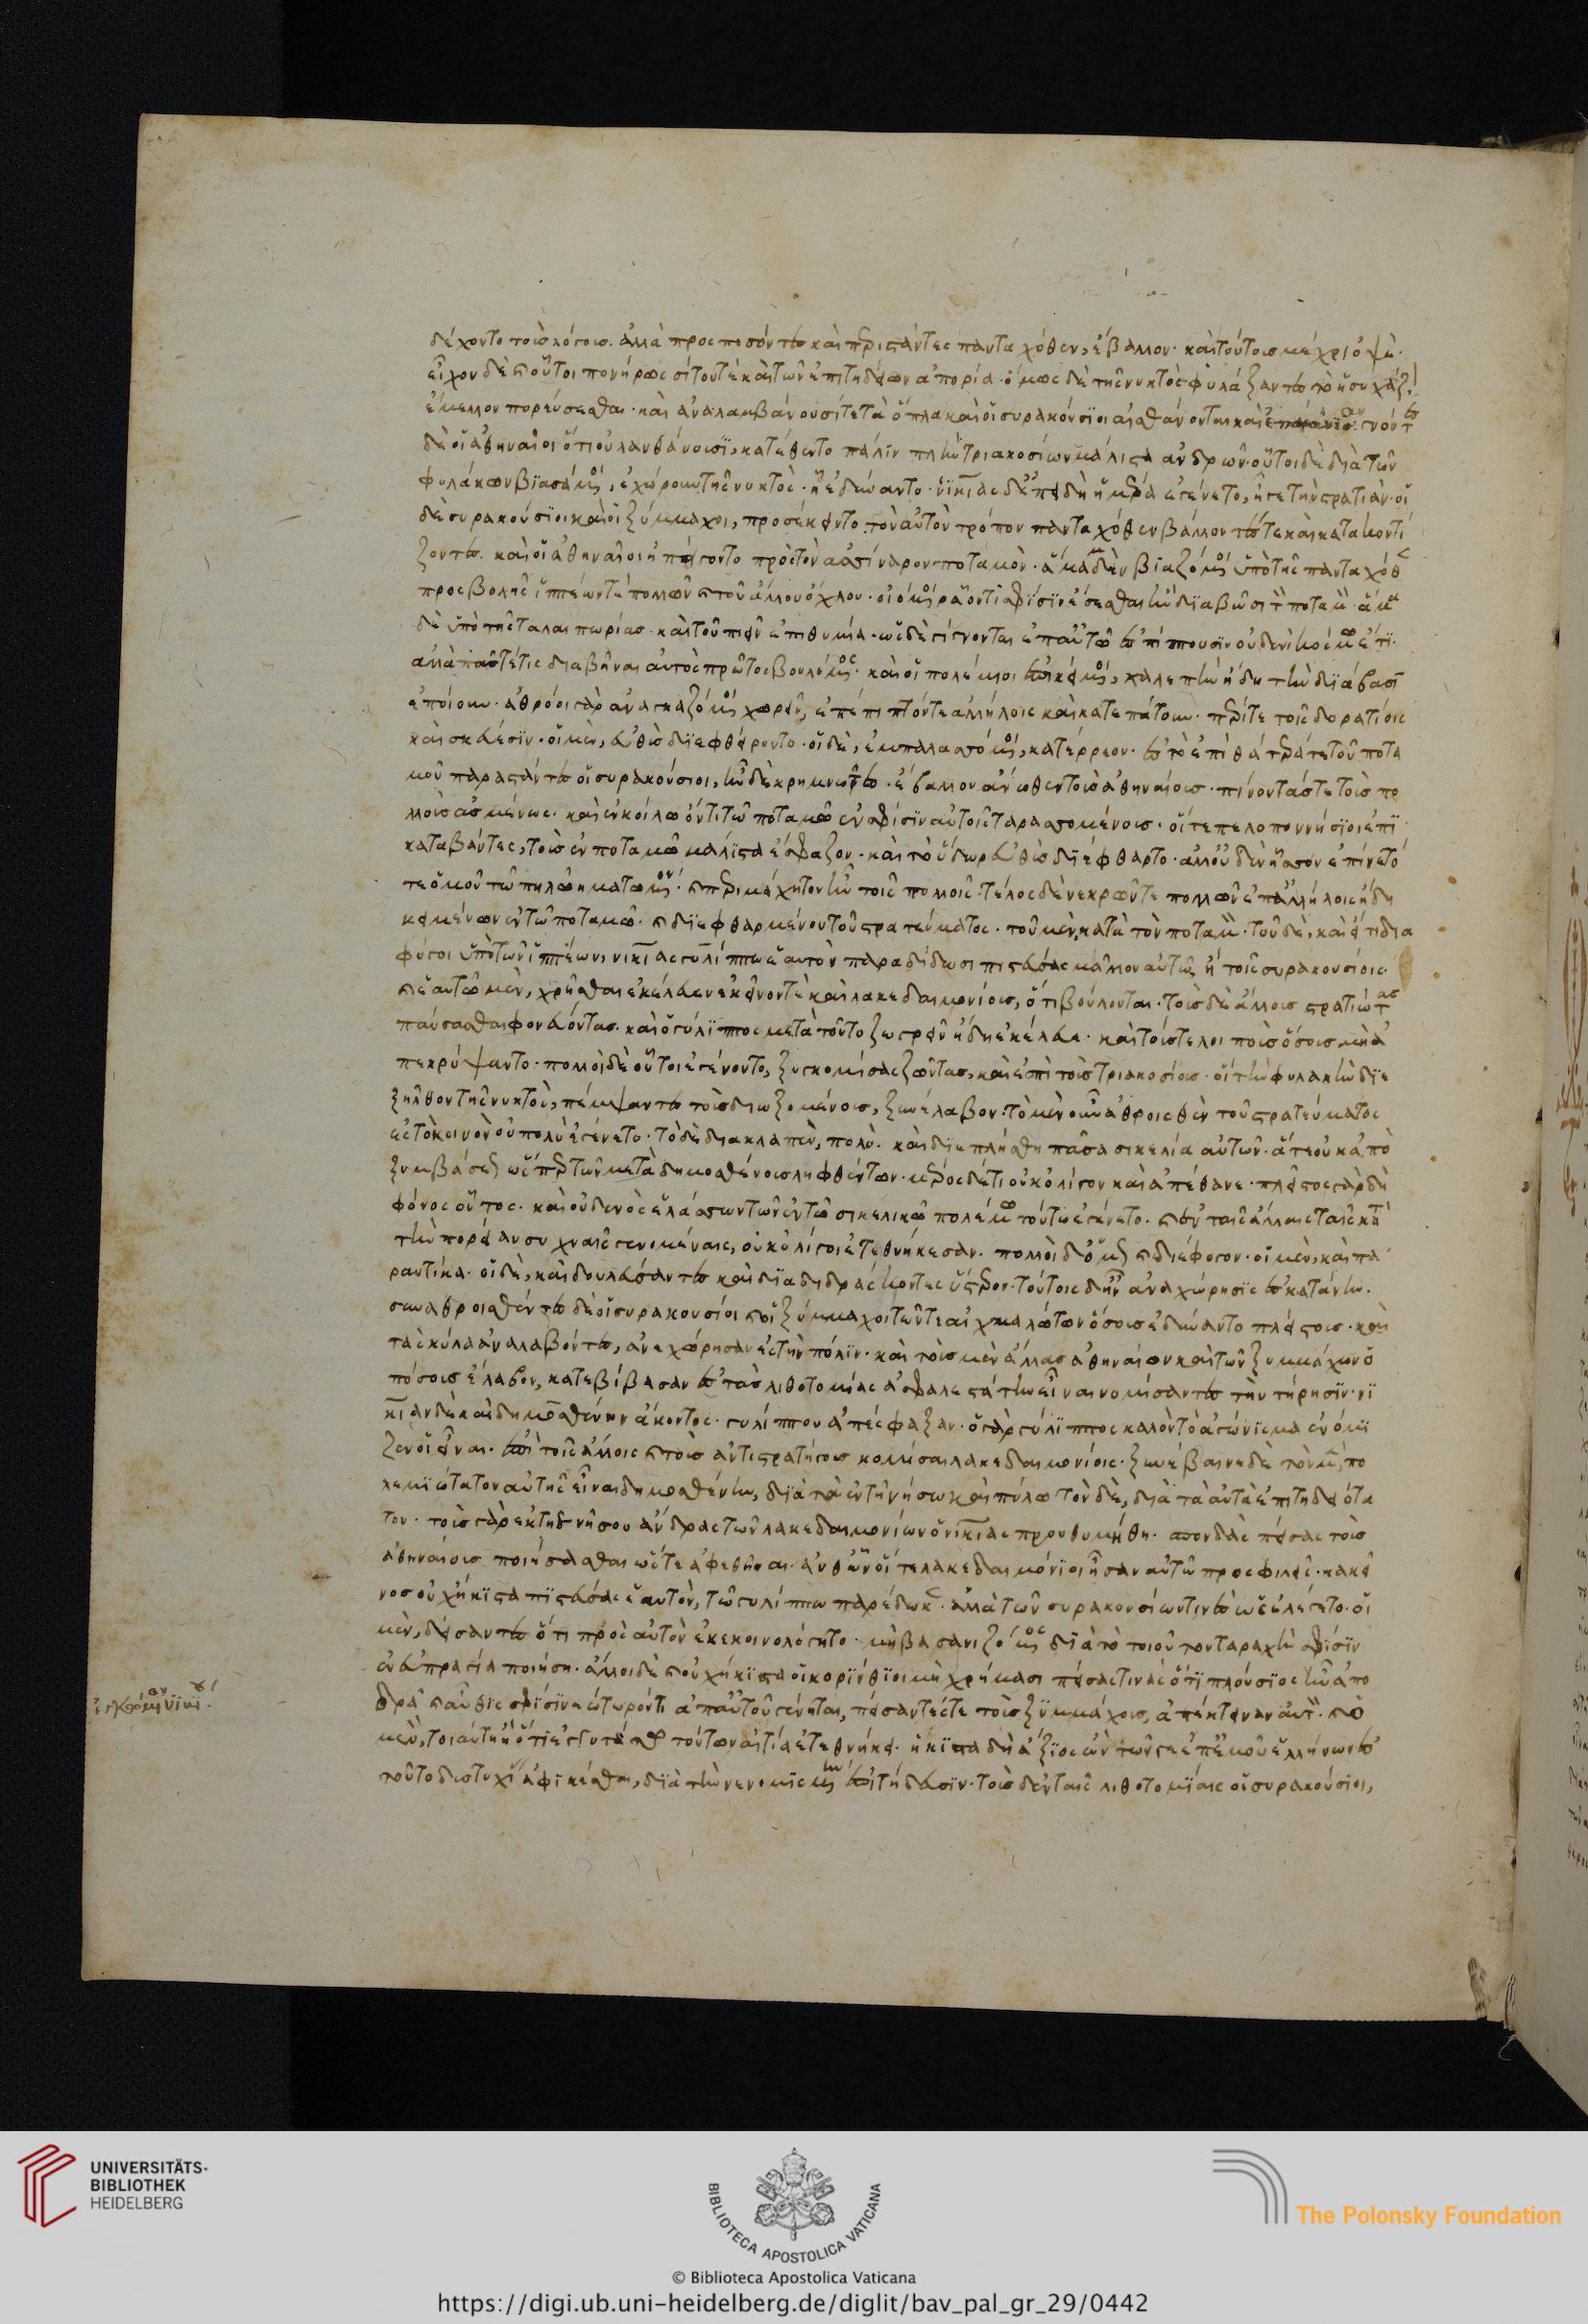 δέχοντο τοὺς λόγους. ἀλλὰ προσπεσόντες καὶ περιστάντες πανταχόθεν, ἔβαλλον· καὶ τούτους μέχρι ὀψέ·
εἶχον δὲ καὶ οὗτοι πονήρως σίτου τὲ καὶ τῶν ἐπιτηδείων ἀπορία· ὅμως δὲ τῆς νυκτὸς φυλάξαντες τὸ ἡσυχάζον
ἔμελλον πορεύσεσθαι· καὶ ἀναλαμβάνουσί τε τὰ ὅπλα καὶ οἱ συρακούσιοι αἰσθάνονται καὶ γνόντες
δὲ οἱ ἀθηναῖοι ὅτι οὐ λανθάνουσι, κατέθεντο πάλιν πλὴν τριακοσίων μάλιστα ἀνδρῶν· οὗτοι δὲ διὰ τῶν
φυλάκων βιασάμενοι, ἐχώρουν τῆς νυκτὸς· ᾗ ἐδύναντο· νικίας δ' ἐπειδὴ ἡμέρα ἐγένετο, ἦγε τὴν στρατιὰν· οἱ
δὲ συρακούσιοι καὶ οἱ ξύμμαχοι, προσέκειντο τὸν αὐτὸν τρόπον πανταχόθεν βάλλοντές τε καὶ κατακοντί
ζοντες. καὶ οἱ ἀθηναῖοι ἠπείγοντο πρὸς τὸν ἀσσίναρον ποταμὸν· ἅμα μὲν βιαζόμενοι ὑπὸ τῆς πανταχόθεν
προσβολῆς ἱππέων τὲ πολλῶν καὶ τοῦ ἄλλου ὄχλου· οἰόμενοι ρᾷόν τι σφίσιν ἔσεσθαι ἢν διαβῶσι τὸν ποταμὸν· ἅμα
δὲ ὑπὸ τῆς ταλαιπωρίας· καὶ τοῦ πιεῖν ἐπιθυμία· ὡς δὲ γίγνονται ἐπ' αὐτῶ ἐσπίπτουσιν οὐδενὶ κόσμω ἔτι·
ἀλλὰ πᾶς τέ τις διαβῆναι αὐτὸς πρῶτος βουλόμενος· καὶ οἱ πολέμιοι ἐπικείμενοι, χαλεπὴν ἤδη τὴν διάβασιν
ἐποίουν· ἀθρόοι γὰρ ἀναγκαζόμενοι χωρεῖν, ἐπέπιπτόν τε ἀλλήλοις καὶ κατεπάτουν· περί τε τοῖς δορατίοις
καὶ σκεύεσιν· οἱ μὲν, εὐθὺς διεφθείροντο· οἱ δὲ, ἐμπαλασσόμενοι, κατέρρεον· ἐς τὸ ἐπὶ θάτερά τε τοῦ ποτα
μοῦ παραστάντες οἱ συρακούσιοι, ἦν δὲ κρημνῶδες· ἔβαλλον ἄνωθεν τοὺς ἀθηναίους· πίνοντάς τε τοὺς πο
λλοὺς ἀσμένως· καὶ ἐν κοίλω ὄντι τῶ ποταμῶ ἐν σφίσιν αὐτοῖς ταρασσομένους· οἵ τε πελοποννήσιοι ἐπι
καταβάντες, τοὺς ἐν ποταμῶ μάλιστα ἔσφαζον· καὶ τὸ ὕδωρ εὐθὺς διέφθαρτο· ἀλλ' οὐδὲν ἧσσον ἐπίνετό
τε ὁμοῦ τῶ πηλῶ ἡματωμένον· καὶ περιμάχητον ἦν τοῖς πολλοῖς· τέλος δὲ νεκρῶν τε πολλῶν ἐπ' ἀλλήλοις ἤδη
κειμένων ἐν τῶ ποταμῶ· καὶ διεφθαρμένου τοῦ στρατεύματος· τοῦ μὲν, κατὰ τὸν ποταμὸν· τοῦ δὲ, καὶ εἴ τι δια
φύγοι ὑπὸ τῶν ἱππέων, νικίας γυλίππω ἑαυτὸν παραδίδωσι πιστεύσας μᾶλλον αὐτῶ ἢ τοῖς συρακουσίοις·
καὶ ἑαυτῶ μὲν, χρῆσθαι ἐκέλευεν ἐκεῖνόν τὲ καὶ λακεδαιμονίους, ὅτι βούλονται· τοὺς δὲ ἄλλους στρατιώτας
παύσασθαι φονεύοντας· καὶ ὁ γύλιππος μετὰ τοῦτο ζωγρεῖν ἤδη ἐκέλευε· καὶ τούς τε λοιποὺς ὅσους μὴ ἀ
πεκρύψαντο· πολλοὶ δὲ οὗτοι ἐγένοντο, ξυγκομίσας ζῶντας, καὶ ἐπὶ τοὺς τριακοσίους· οἳ τὴν φυλακὴν διε
ξῆλθον τῆς νυκτὸς, πέμψαντες τοὺς διωξομένους, ξυνέλαβον· τὸ μὲν οὖν ἀθροισθὲν τοῦ στρατεύματος
ἐς τὸ κοινὸν οὐ πολὺ ἐγένετο· τὸ δὲ διακλαπὲν, πολὺ· καὶ διεπλήσθη πᾶσα σικελία αὐτῶν· ἅτε οὐκ ἀπὸ
ξυμβάσεως ὥσπερ τῶν μετὰ δημοσθένους ληφθέντων· μέρος δέ τι οὐκ ὀλίγον καὶ ἀπέθανε· πλεῖστος γὰρ δὴ
φόνος οὗτος· καὶ οὐδενὸς ἐλάσσων τῶν ἐν τῶ σικελικῶ πολέμω τούτω ἐγένετο· καὶ ἐν ταῖς ἄλλαις ταῖς κατὰ
τὴν πορείαν συχναῖς γενομέναις, οὐκ ὀλίγοι ἐτεθνήκεσαν· πολλοὶ δ' ὅμως καὶ διέφυγον· οἱ μὲν, καὶ πα
ραυτίκα· οἱ δὲ, καὶ δουλεύσαντες καὶ διαδιδράσκοντες ὕστερον· τούτοις δ' ἦν ἀναχώρησις ἐς κατάνην·
ξυναθροισθέντες δὲ οἱ συρακούσιοι καὶ οἱ ξύμμαχοι τῶν τε αἰχμαλώτων ὅσους ἐδύναντο πλείστους· καὶ
τὰ σκῦλα ἀναλαβόντες, ἀνεχώρησαν ἐς τὴν πόλιν· καὶ τοὺς μὲν ἄλλους ἀθηναίων καὶ τῶν ξυμμάχων ὁ
πόσους ἔλαβον, κατεβίβασαν ἐς τὰς λιθοτομίας ἀσφαλεστάτην εἶναι νομίσαντες τὴν τήρησιν· νι
κίαν δὲ καὶ δημοσθένην ἄκοντος· γυλίππου ἀπέσφαξαν· ὁ γὰρ γύλιππος καλὸν τὸ ἀγώνισμα ἐνόμι
ζέν οἱ εἶναι· ἐπὶ τοῖς ἄλλοις καὶ τοὺς ἀντιστρατήγους κομίσαι λακεδαιμονίοις· ξυνέβαινε δὲ τὸν μὲν, πο
λεμιώτατον αὐτῆς εἶναι δημοσθένην, διὰ τὰ ἐν τῆ νήσω καὶ πύλω τὸν δὲ, διὰ τὰ αὐτὰ ἐπιτηδειότα
τον· τοὺς γὰρ ἐκ τῆς νήσου ἄνδρας τῶν λακεδαιμονίων ὁ νικίας προυθυμήθη· σπονδὰς πείσας τοὺς
ἀθηναίους ποιήσασθαι ὥστε ἀφεθῆναι· ἀνθ' ὧν οἵ τε λακεδαιμόνιοι ἦσαν αὐτῶ προσφιλεῖς· κακεῖ
νος οὐχ ἥκιστα πιστεύσας ἑαυτὸν, τῶ γυλίππω παρέδωκε· ἀλλὰ τῶν συρακουσίων τινὲς ὡς ἐλέγετο· οἱ
μὲν, δείσαντες ὅτι πρὸς αὐτὸν ἐκεκοινολόγητο· μὴ βασανιζόμενος διὰ τὸ τοιοῦτον ταραχὴν σφίσιν
ἐν εὐπραγία ποιήση· ἄλλοι δὲ καὶ οὐχ ἥκιστα οἱ κορίνθιοι μὴ χρήμασι πείσας τινὰς ὅτι πλούσιος ἦν ἀπο
δρᾶ καὶ αὖθις σφίσιν νεώτερόν τι ἀπ' αὐτοῦ γένηται, πείσαντές τε τοὺς ξυμμάχους, ἀπέκτειναν αὐτὸν· καὶ ὁ
μὲν, τοιαύτη ἢ ὅτι ἐγγύτατα τούτων αἰτία ἐτεθνήκει· ἥκιστα δὴ ἄξιος ὢν τῶν γε ἐπ' ἐμοῦ ἑλλήνων ἐς
τοῦτο δυστυχίας ἀφικέσθαι, διὰ τὴν νενομισμένην ἐπιτήδευσιν· τοὺς δ' ἐν ταῖς λιθοτομίαις οἱ συρακούσιοι,
UNIVERSITÄTS-
BIBLIOTHEK
HEIDELBERG
BIBLIOTECA APOSTOLICA VATICANA
The Polonsky Foundation
© Biblioteca Apostolica Vaticana
https://digi.ub.uni-heidelberg.de/diglit/bav_pal_gr_29/0442